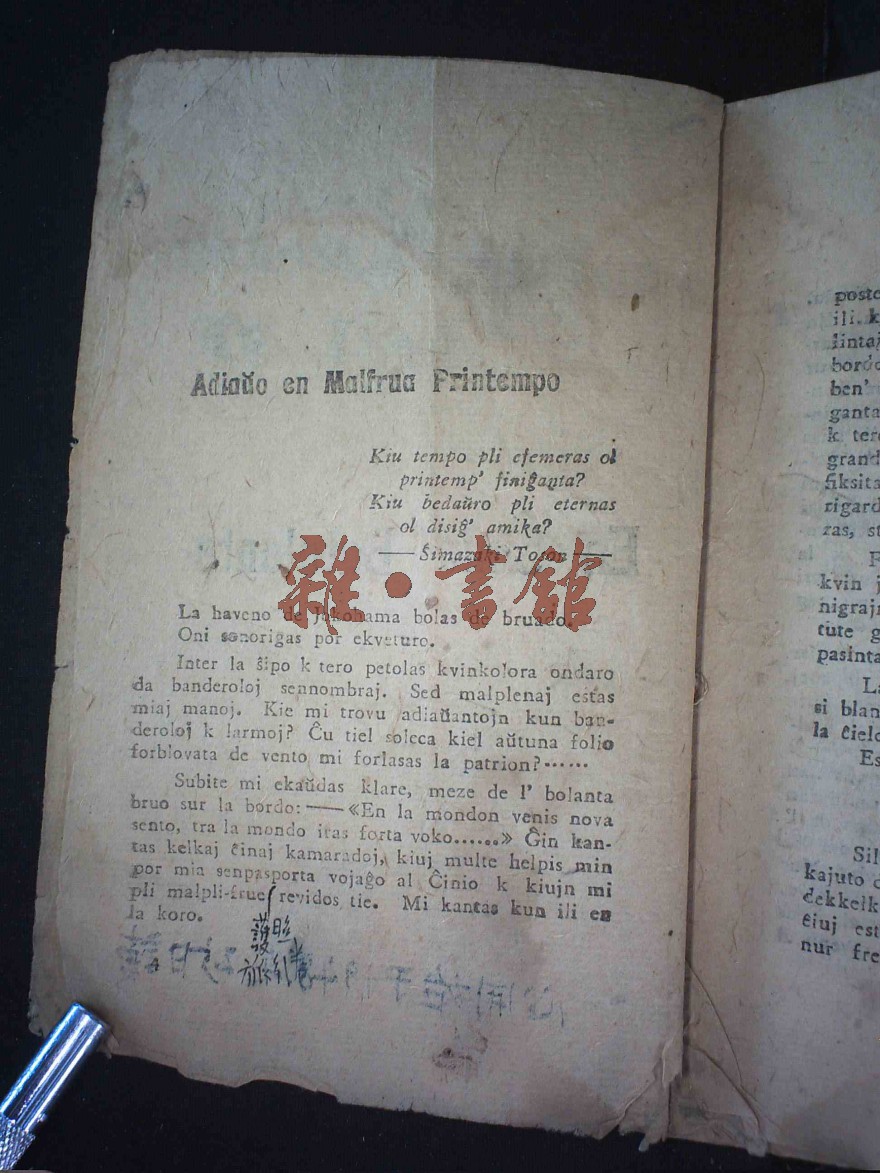 Adiaŭo en Malfrua Printempo
Kiu tempo pli efemeras ol
printemp' finiĝanta?
Kiu bedaŭro pli eternas
ol disiĝ' amika?
—— Ŝimazaki Toson ——
雜•書館
La haveno de Jokohama bolas de bruado.
Oni sonoriĝas por ekveturo.
Inter la ŝipo k tero petolas kvinkolora ondaro
da banderoloj sennombraj. Sed malplenaj estas
miaj manoj. Kie mi trovu adiaŭantojn kun ban-
deroloj k larmoj? Ĉu tiel soleca kiel aŭtuna folio
forblovata de vento mi forlasas la patrion?······
Subite mi ekaŭdas klare, meze de l' bolanta
bruo sur la bordo: —— «En la mondon venis nova
sento, tra la mondo iras forta voko......» Ĝin kan-
tas kelkaj ĉinaj kamaradoj, kiuj multe helpis min
por mia senpasporta vojaĝo al Ĉinio k kiujn mi
pli malpli-frue revidos tie. Mi kantas kun ili en
la koro.
4
poste
ili k
bordo
ben'
ganta
k ter
grand
fiksita
rigard
ras, st
kvin j
nigraj
tute g
pasinta
La
si blan
la ĉielo
Es
Sil
kajuto d
dekkelk
ĉiuj est
nur fre